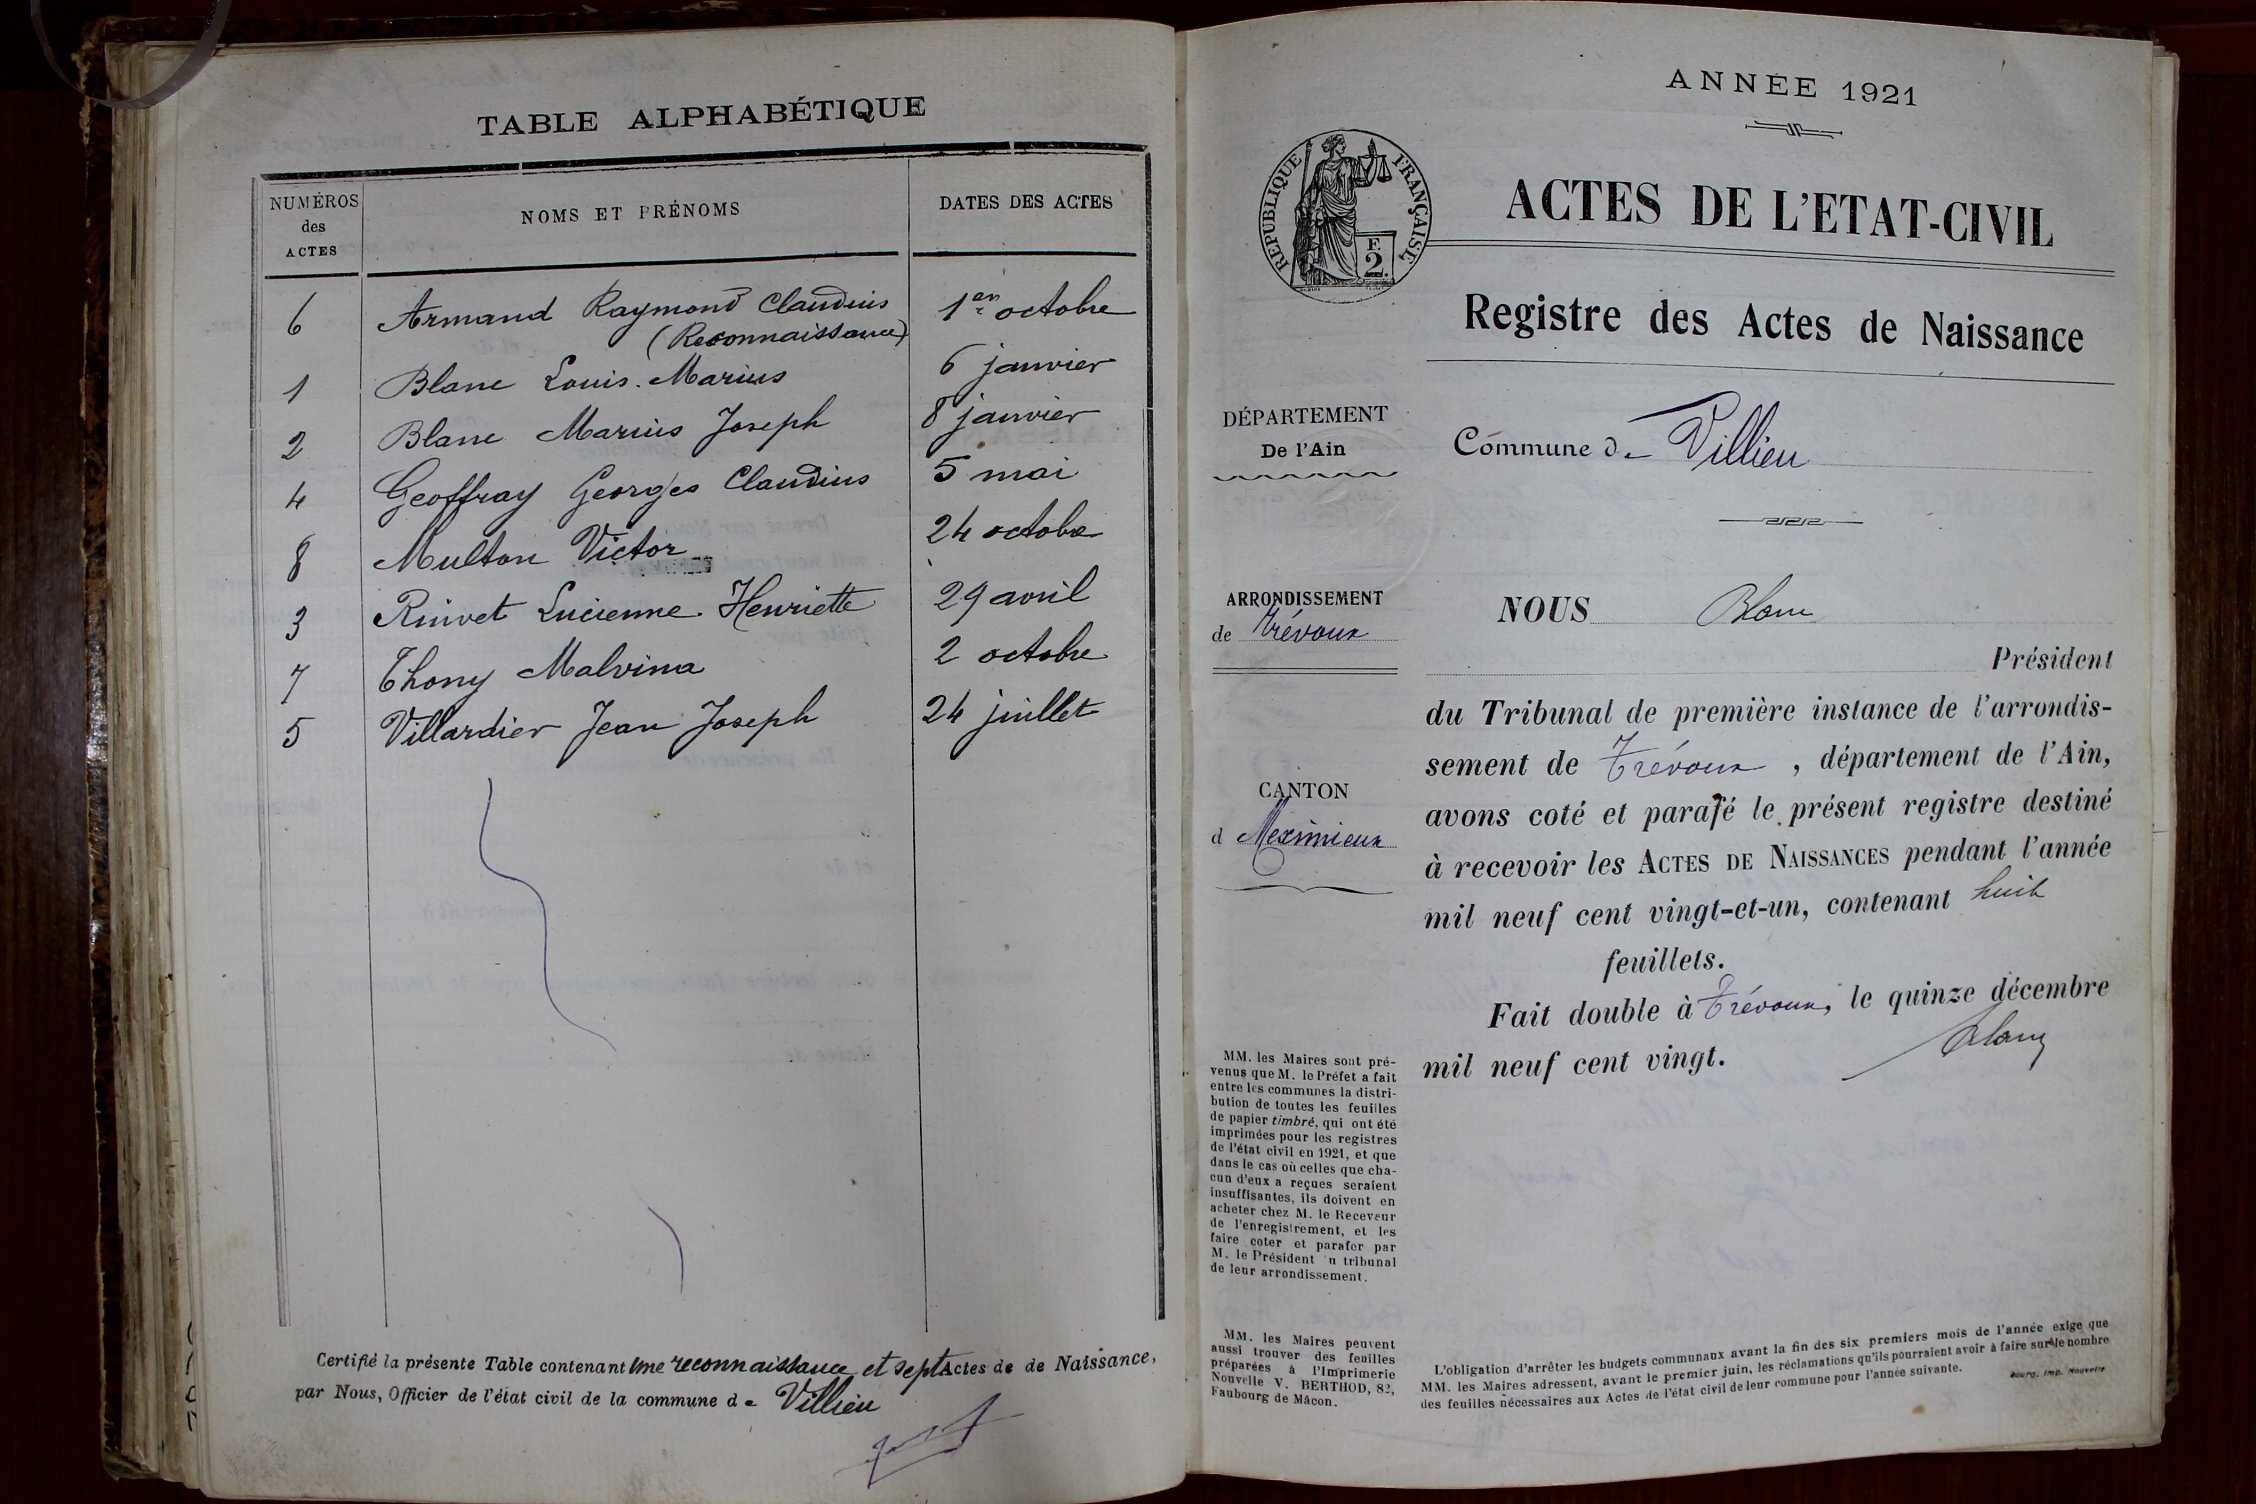 TABLE ALPHABÉTIQUE
NUMÉROS
des
ACTES
NOMS ET PRÉNOMS
DATES DES ACTES
6 Armand Raymond Claudius 1er octobre
(Reconnaissance)
1 Blanc Louis. Marius 6 janvier
2 Blanc Marius Joseph 8 janvier
4 Geoffray Georges Claudius 5 mai
8 Multon Victor 24 octobre
3 Rinvet Lucienne Henriette 29 avril
7 Thony Malvina 2 octobre
5 Villardier Jean Joseph 24 juillet
Certifié la présente Table contenant une reconnaissance et sept Actes de de Naissance,
par Nous, Officier de l'état civil de la commune de Villieu
ANNÉE 1921
RÉPUBLIQUE FRANÇAISE
F.
2.
ACTES DE L'ETAT-CIVIL
Registre des Actes de Naissance
DÉPARTEMENT
De l'Ain
Commune de Villieu
ARRONDISSEMENT
de Trévoux
CANTON
d Meximieux
NOUS Blanc
Président
du Tribunal de première instance de l'arrondis-
sement de Trévoux, département de l'Ain,
avons coté et parafé le présent registre destiné
à recevoir les ACTES DE NAISSANCES pendant l'année
mil neuf cent vingt-et-un, contenant huit
feuillets.
Fait double à Trévoux, le quinze décembre
mil neuf cent vingt.
Blanc
MM. les Maires sont pré-
venus que M. le Préfet a fait
entre les communes la distri-
bution de toutes les feuilles
de papier timbré, qui ont été
imprimées pour les registres
de l'état civil en 1921, et que
dans le cas où celles que cha-
cun d'eux a reçues seraient
insuffisantes, ils doivent en
acheter chez M. le Receveur
de l'enregistrement, et les
faire coter et parafer par
M. le Président u tribunal
de leur arrondissement.
MM. les Maires peuvent
aussi trouver des feuilles
préparées à l'Imprimerie
Nouvelle V. BERTHOD, 82,
Faubourg de Mâcon.
L'obligation d'arrêter les budgets communaux avant la fin des six premiers mois de l'année exige que
MM. les Maires adressent, avant le premier juin, les réclamations qu'ils pourraient avoir à faire sur le nombre
des feuilles nécessaires aux Actes de l'état civil de leur commune pour l'année suivante.
Bourg, Imp. Nouvelle